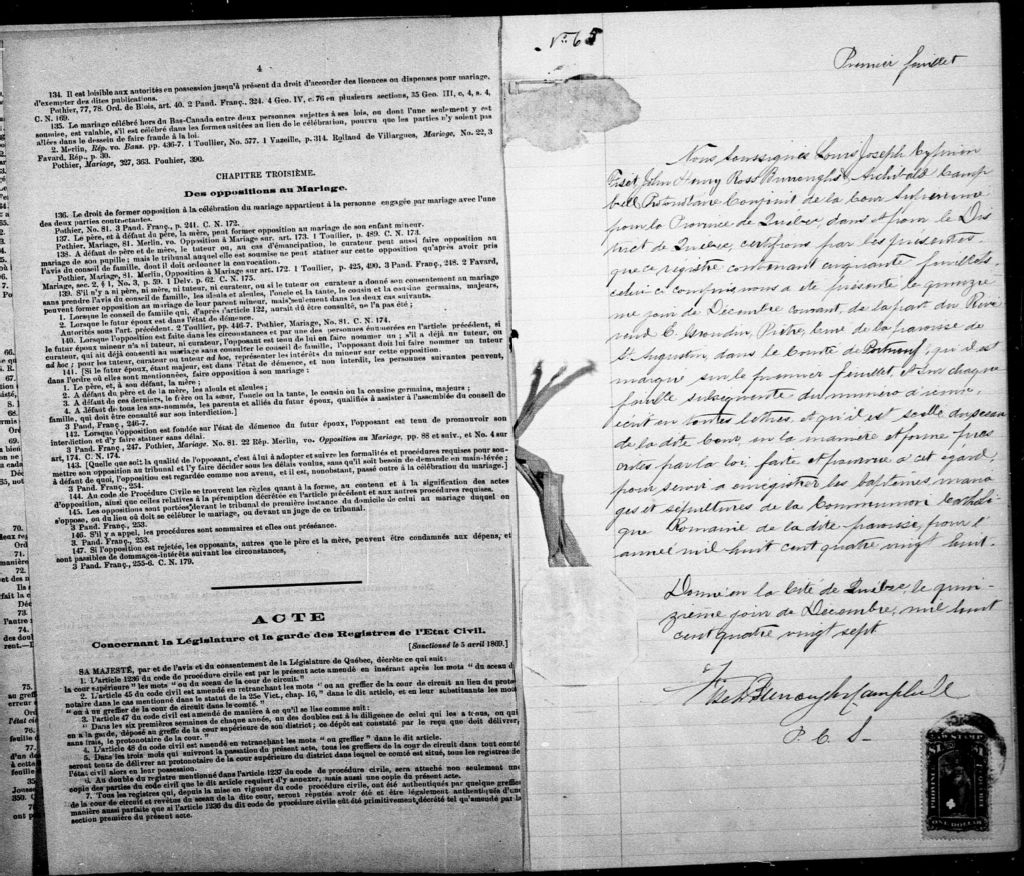 4
134. Il est loisible aux autorités en possession jusqu'à présent du droit d'accorder des licences ou dispenses pour mariage,
d'exempter des dites publications.
Pothier, 77, 78. Ord. de Blois, art. 40. 2 Pand. Franç., 324. 4 Geo. IV, c. 76 en plusieurs sections, 35 Geo. III, c, 4, s. 4,
C. N. 169.
135. Le mariage célébré hors du Bas-Canada entre deux personnes sujettes à ses lois, ou dont l'une seulement y est
soumise, est valable, s'il est célébré dans les formes usitées au lieu de la célébration, pourvu que les parties n'y soient pas
allées dans le dessein de faire fraude à la loi.
2. Merlin, Rép. vo. Bans. pp. 436-7. 1 Toullier, No. 577. 1 Vazeille, p. 314. Rolland de Villargues, Mariage, No. 22, 3
Favard, Rép., p. 30.
Pothier, Mariage, 327, 363. Pouhier, 390.
CHAPITRE TROISIÈME.
Des oppositions au Mariage.
136. Le droit de former opposition à la célébration du mariage appartient à la personne engagée par mariage avec l'une
des deux parties contractantes.
Pothier, No. 81. 3 Pand. Franç., p. 241. C. N. 172.
137. Le père, et à défaut du père, la mère, peut former opposition au mariage de son enfant mineur.
Pothier, Mariage, 81. Merlin. vo. Opposition à Mariage sur. art. 173. 1 Toullier, p. 489. C. N. 173.
138. A défaut de père et de mère, le tuteur ou, au cas d'émancipation, le curateur peut aussi faire opposition au
mariage de son pupille; mais le tribunal auquel elle est soumise ne peut statuer sur cette opposition qu'après avoir pris
l'avis du conseil de famille, dont il doit ordonner la convocation.
Pothier, Mariage, 81. Merlin, Opposition à Mariage sur art. 172. 1 Toullier, p. 425, 490. 3 Pand. Franç., 248. 2 Favard,
Mariage, sec. 2, § 1, No. 3, p. 59. 1 Delv. p. 62. C. N. 175.
139. S'il n'y a ni père, ni mère, ni tuteur, ni curateur, ou si le tuteur ou curateur a donné son consentement au mariage
sans prendre l'avis du conseil de famille, les aïeuls et aïeules, l'oncle et la tante, le cousin et la cousine germains, majeurs,
peuvent former opposition au mariage de leur parent mineur, mais seulement dans les deux cas suivants.
1. Lorsque le conseil de famille qui, d'après l'article 122, aurait dû être consulté, ne l'a pas été;
2. Lorsque le futur époux est dans l'état de démence.
Autorités sous l'art. précédent. 2 Toullier, pp. 446-7. Pothier, Mariage, No. 81. C. N. 174.
140. Lorsque l'opposition est faite dans les circonstances et par une des personnes énumérées en l'article précédent, si
le futur époux mineur n'a ni tuteur, ni curateur, l'opposant est tenu de lui en faire nommer un; s'il a déjà un tuteur, ou
curateur, qui ait déjà consenti au mariage sans consulter le conseil de famille, l'opposant doit lui faire nommer un tuteur
ad hoc; pour les tuteur, curateur ou tuteur ad hoc, représenter les intérêts du mineur sur cette opposition.
141. [Si le futur époux, étant majeur, est dans l'état de démence, et non interdit, les personnes suivantes peuvent,
dans l'ordre où elles sont mentionnées, faire opposition à son mariage:
1. Le père, et, à son défaut, la mère;
2. A défaut du père et de la mère, les aïeuls et aïeules;
3. A défaut de ces derniers, le frère ou la sœur, l'oncle ou la tante, le cousin ou la cousine germains, majeurs;
4. A défaut de tous les sus-nommés, les parents et alliés du futur époux, qualifiés à assister à l'assemblée du conseil de
famille, qui doit être consulté sur son interdiction.]
3 Pand. Franç., 246-7.
142. Lorsque l'opposition est fondée sur l'état de démence du futur époux, l'opposant est tenu de promouvoir son
interdiction et d'y faire statuer sans délai.
3 Pand. Franç., 247. Pothier, Mariage, No. 81. 22 Rép. Merlin, vo. Opposition au Mariage, pp. 88 et suiv., et No. 4 sur
art, 174. C. N. 174.
143. [Quelle que soit la qualité de l'opposant, c'est à lui à adopter et suivre les formalités et procédures requises pour sou-
mettre son opposition au tribunal et l'y faire décider sous les délais voulus, sans qu'il soit besoin de demande en main-levée;
à défaut de quoi, l'opposition est regardée comme non avenue, et il est, nonobstant, passé outre à la célébration du mariage.]
3 Pand. Franç., 254.
144. Au code de Procédure Civile se trouvent les règles quant à la forme, au contenu et à la signification des actes
d'opposition, ainsi que celles relatives à la péremption décrétée en l'article précédent et aux autres procédures requises.
145. Les oppositions sont portées devant le tribunal de première instance du domicile de celui au mariage duquel on
s'oppose, ou du lieu où doit se célébrer le mariage, ou devant un juge de ce tribunal.
3 Pand. Franç., 253.
146. S'il y a appel, les procédures sont sommaires et elles ont préséance.
3 Pand. Franç., 253.
147. Si l'opposition est rejetée, les opposants, autres que le père et la mère, peuvent être condamnés aux dépens, et
sont passibles de dommages-intérêts suivant les circonstances,
3 Pand. Franç., 255-6. C. N. 179.
ACTE
Concernant la Législature et la garde des Registres de l'Etat Civil.
[Sanctionné le 5 avril 1869.]
SA MAJESTÉ, par et de l'avis et du consentement de la Législature de Québec, décrète ce qui suit:
1. L'article 1236 du code de procédure civile est par le présent acte amendé en insérant après les mots "du sceau de
la cour supérieure" les mots "ou du sceau de la cour de circuit."
2. L'article 45 du code civil est amendé en retranchant les mots "ou au greffier de la cour de circuit au lieu du proto-
notaire dans le cas mentionné dans le statut de la 25e Vict., chap. 16," dans le dit article, et en leur substituant les mots
"ou à un greffier de la cour de circuit dans le comté."
3. L'article 47 du code civil est amendé de manière à ce qu'il se lise comme suit:
"Dans les six premières semaines de chaque année, un des doubles est à la diligence de celui qui les a tenus, ou qui
en a la garde, déposé au greffe de la cour supérieure de son district; ce dépôt est constaté par le reçu que doit délivrer,
sans frais, le protonotaire de la cour."
4. L'article 48 du code civil est amendé en retranchant les mots "ou greffier" dans le dit article.
5. Dans les trois mois qui suivront la passation du présent acte, tous les greffiers de la cour de circuit dans tout comté
seront tenus de délivrer au protonotaire de la cour supérieure du district dans lequel ce comté est situé, tous les registres de
l'état civil alors en leur possession.
6. Au double du registre mentionné dans l'article 1237 du code de procédure civile, sera attaché non seulement une
copie des parties du code civil que le dit article requiert d'y annexer, mais aussi une copie du présent acte.
7. Tous les registres qui, depuis la mise en vigueur du code procédure civile, ont été authentiqués par quelque greffier
de la cour de circuit et revêtus du sceau de la dite cour, seront réputés avoir été et être légalement authentiqués d'une
manière aussi parfaite que si l'article 1236 du dit code de procédure civile eût été primitivement décrété tel qu'amendé par la
section première du présent acte.
No. 65
Premier feuillet
Nous Soussignés Louis Joseph Cyprien
Fiset, John Henry Ross Burroughs & Archibald Camp
bell Protonotaire Conjoint de la Cour Supérieure
pour la Province de Québec dans et pour le Dis
trict de Québec, certifions par les présentes
que ce registre contenant cinquante feuillets
celui ci compris nous a été présenté le quinziè
me jour de Décembre courant, de la part du Réve
rend C. Gaudin, Prêtre, Curé de la paroisse de
St Augustin, dans le Comté de Portneuf, qu'il est
marqué sur le premier feuillet, et sur chaque
feuillet subséquent du numéro d'icelui
écrit en toutes lettres, et qu'il est scellé du sceau
de la dite Cour, en la manière et forme pres
crites par la loi, faite et pourvue à cet égard,
pour servir à enregistrer les baptêmes maria
ges et sépultures de la Communion Catholi
que Romaine de la dite paroisse, pour l'
année mil huit cent quatre vingt huit.
Donné en la Cité de Québec, le quin-
zième jour de Décembre, mil huit
cent quatre vingt sept
Fiset Burroughs Campbell
P. C. S.
LAW STAMP
$1 $1
PROVINCE QUEBEC
ONE DOLLAR